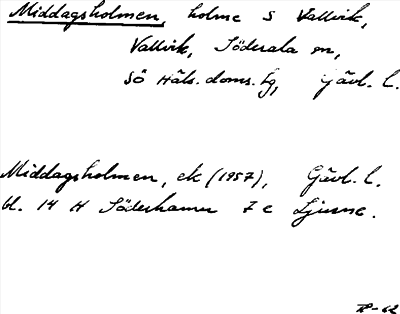 Middagsholmen, holme S Vallvik,
Vallvik, Söderala sn,
SÖ Häls. doms. tg, Gävl. l.
Middagsholmen, ek (1957), Gävl. l.
bl. 14 H Söderhamn 7 c Ljusne.
-62